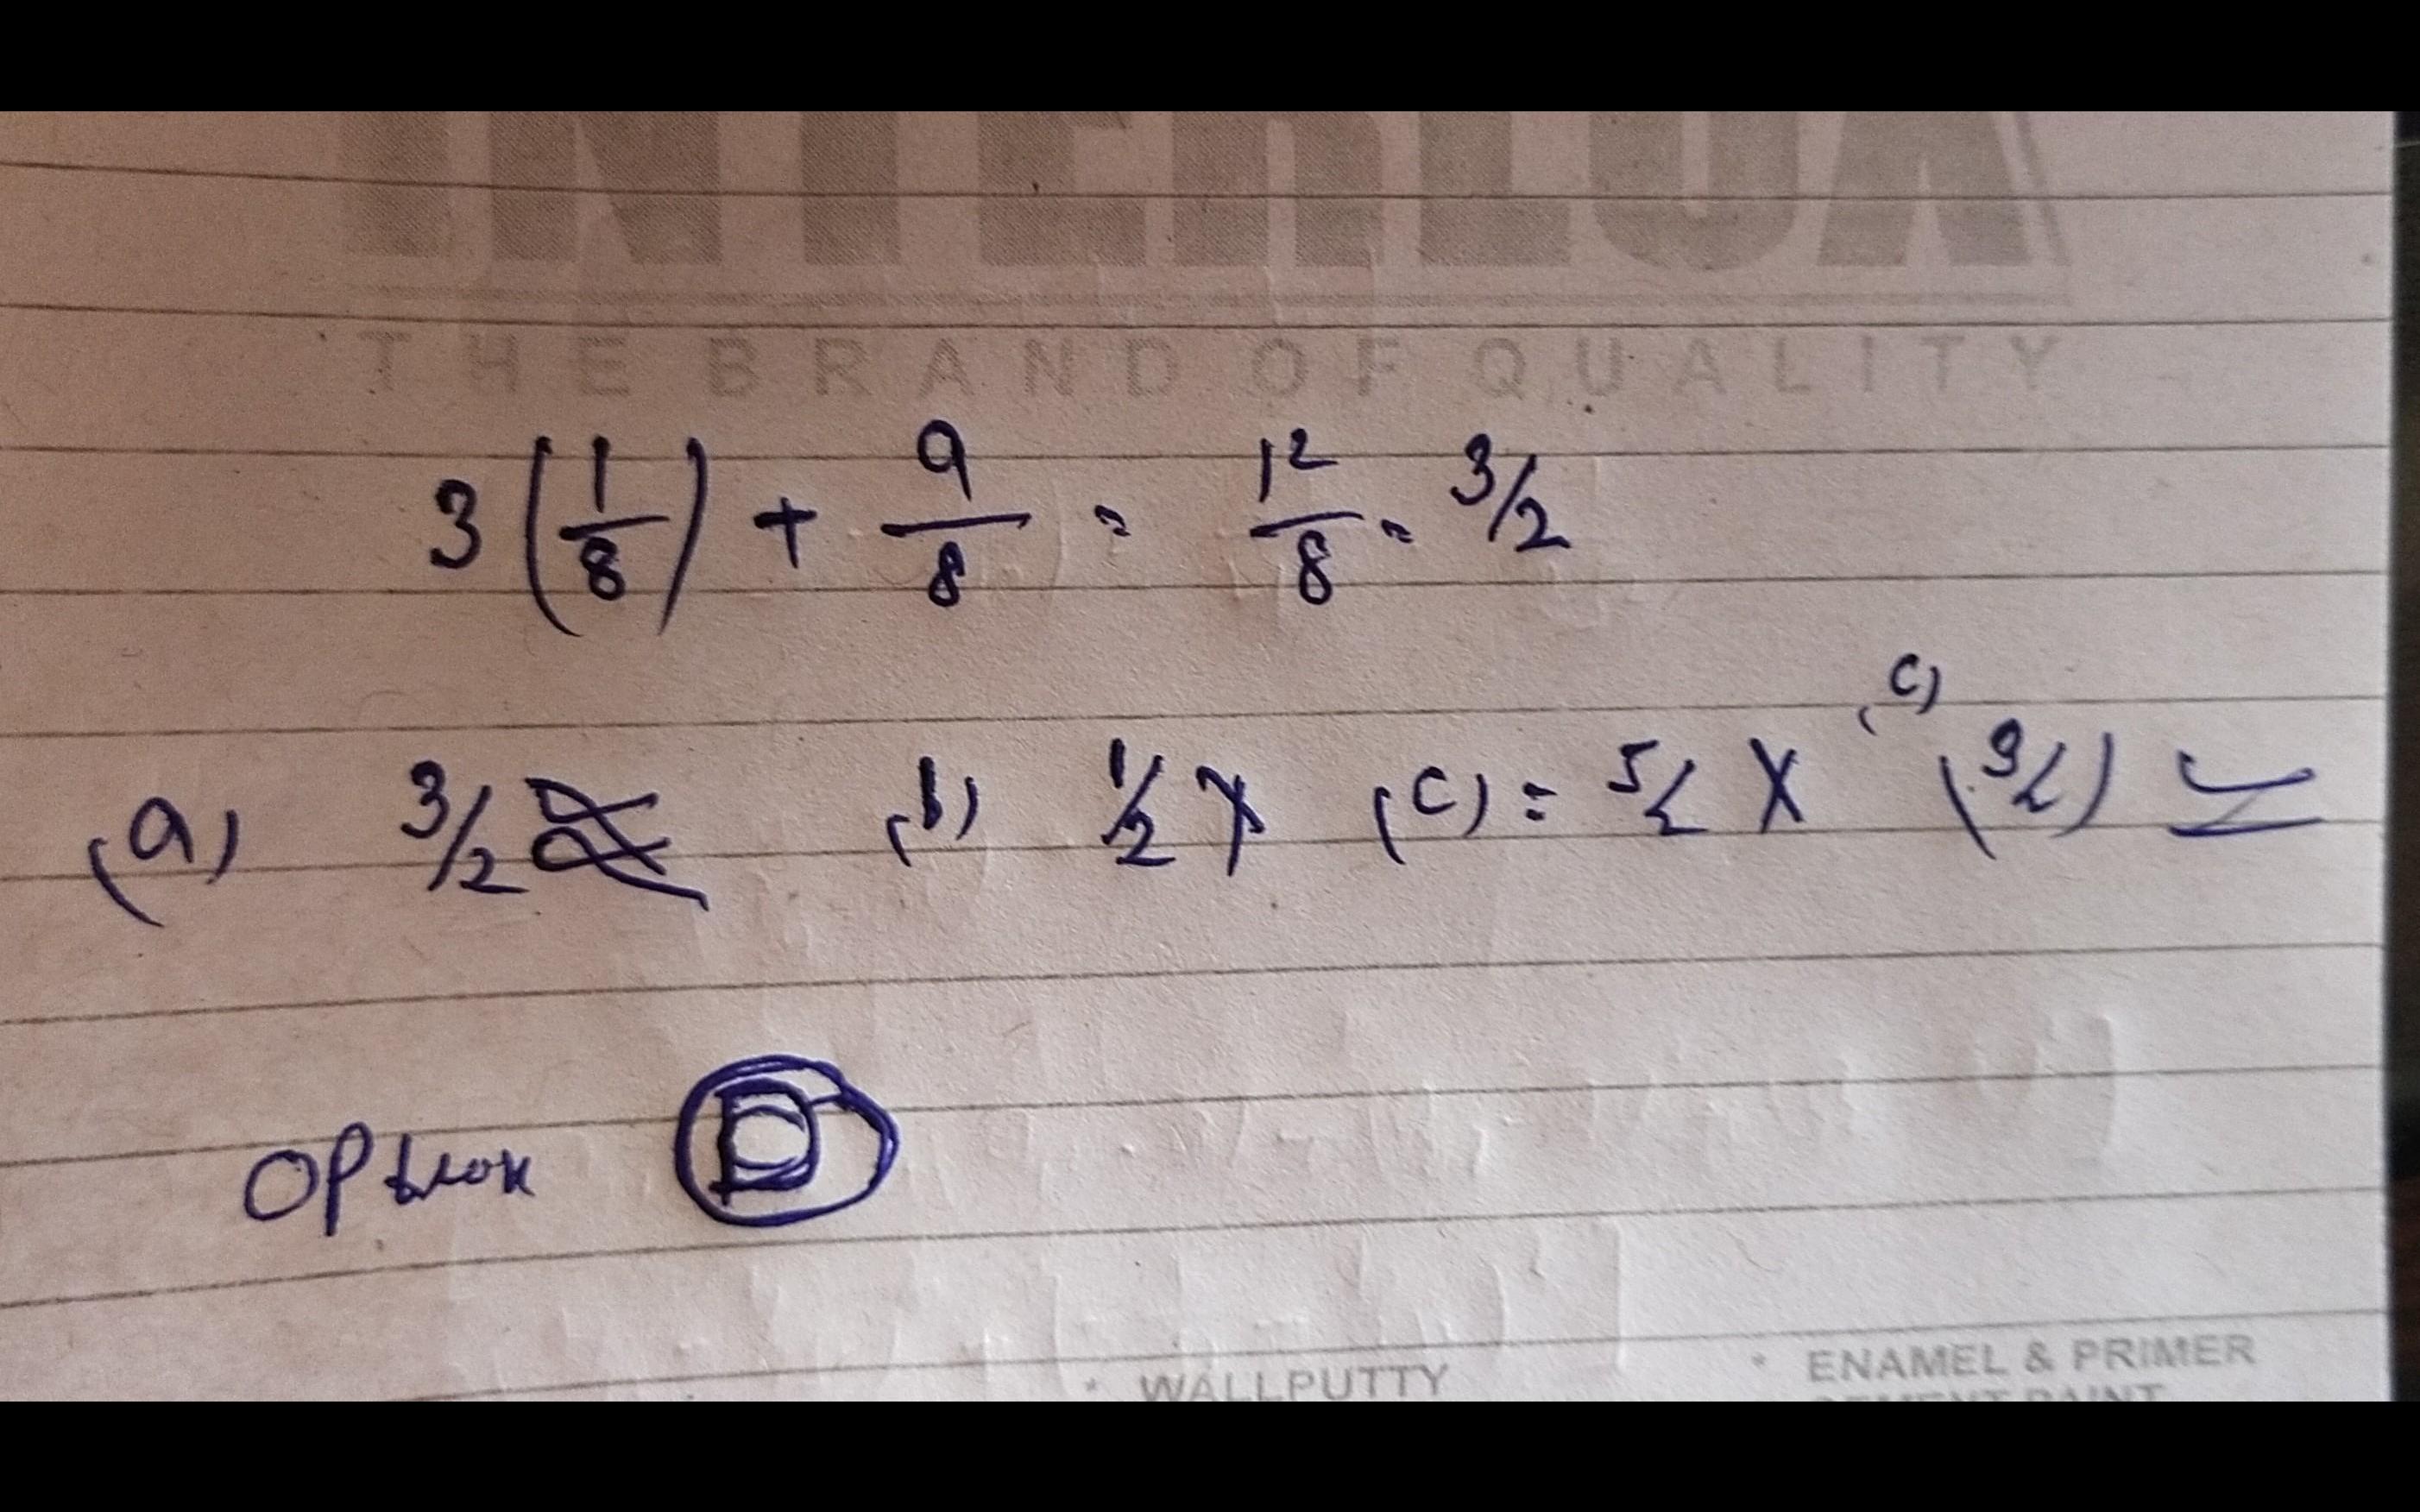 INTERLUX
THE BRAND OF QUALITY
3 (1/8) + 9/8 = 12/8 = 3/2
(a) 3/2 (b) 1/2 X (c) = 5/2 X (c) (9/2)
option D
* WALLPUTTY * ENAMEL & PRIMER
CEMENT PAINT